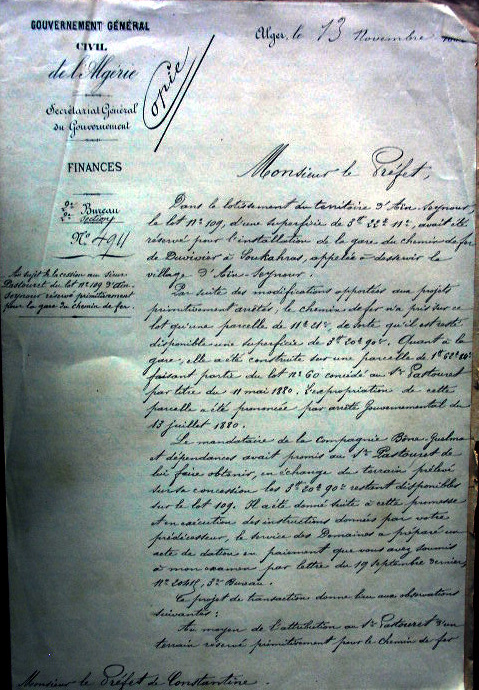 GOUVERNEMENT GÉNÉRAL
CIVIL
de l'Algérie
Secrétariat Général
du Gouvernement
FINANCES
2e Bureau
2e Section
No 4911
Au sujet de la cession au Sieur
Pastouret du lot no 109 d'Aïn-
Seynour réservé primitivement
pour la gare du chemin de fer.
Copie
Alger, le 13 Novembre
Monsieur le Préfet,
Dans le lotissement du territoire d'Aïn-Seynour,
le lot No 109, d'une superficie de 3h 22a 11c, avait été
réservé pour l'installation de la gare du chemin de fer
de Duvivier à Soukahras, appelée à desservir le
village d'Aïn-Seynour.
Par suite des modifications apportées aux projets
primitivement arrêtés, le chemin de fer n'a pris sur ce
lot qu'une parcelle de 11a 21c, de sorte qu'il est resté
disponible une superficie de 3h 20a 90c. Quant à la
gare, elle a été construite sur une parcelle de 1h 62a
faisant partie du lot No 60 concédé au Sr Pastouret
par titre du 11 mai 1880. L'expropriation de cette
parcelle a été prononcée par arrêté Gouvernemental du
13 juillet 1880.
Le mandataire de la Compagnie Bône-Guelma
et dépendances avait promis au Sr Pastouret de
lui faire obtenir, en échange du terrain prélevé
sur sa concession les 3h 20a 90c restant disponibles
sur le lot 109. Il a été donné suite à cette promesse
et en exécution des instructions données par votre
prédécesseur, le service des Domaines a préparé un
acte de dation en paiement que vous avez soumis
à mon examen par lettre du 19 septembre dernier,
No 3e Bureau.
Ce projet de transaction donne lieu aux observations
suivantes :
Au moyen de l'attribution au Sr Pastouret d'un
terrain réservé primitivement pour le chemin de fer
Monsieur le Préfet de Constantine.